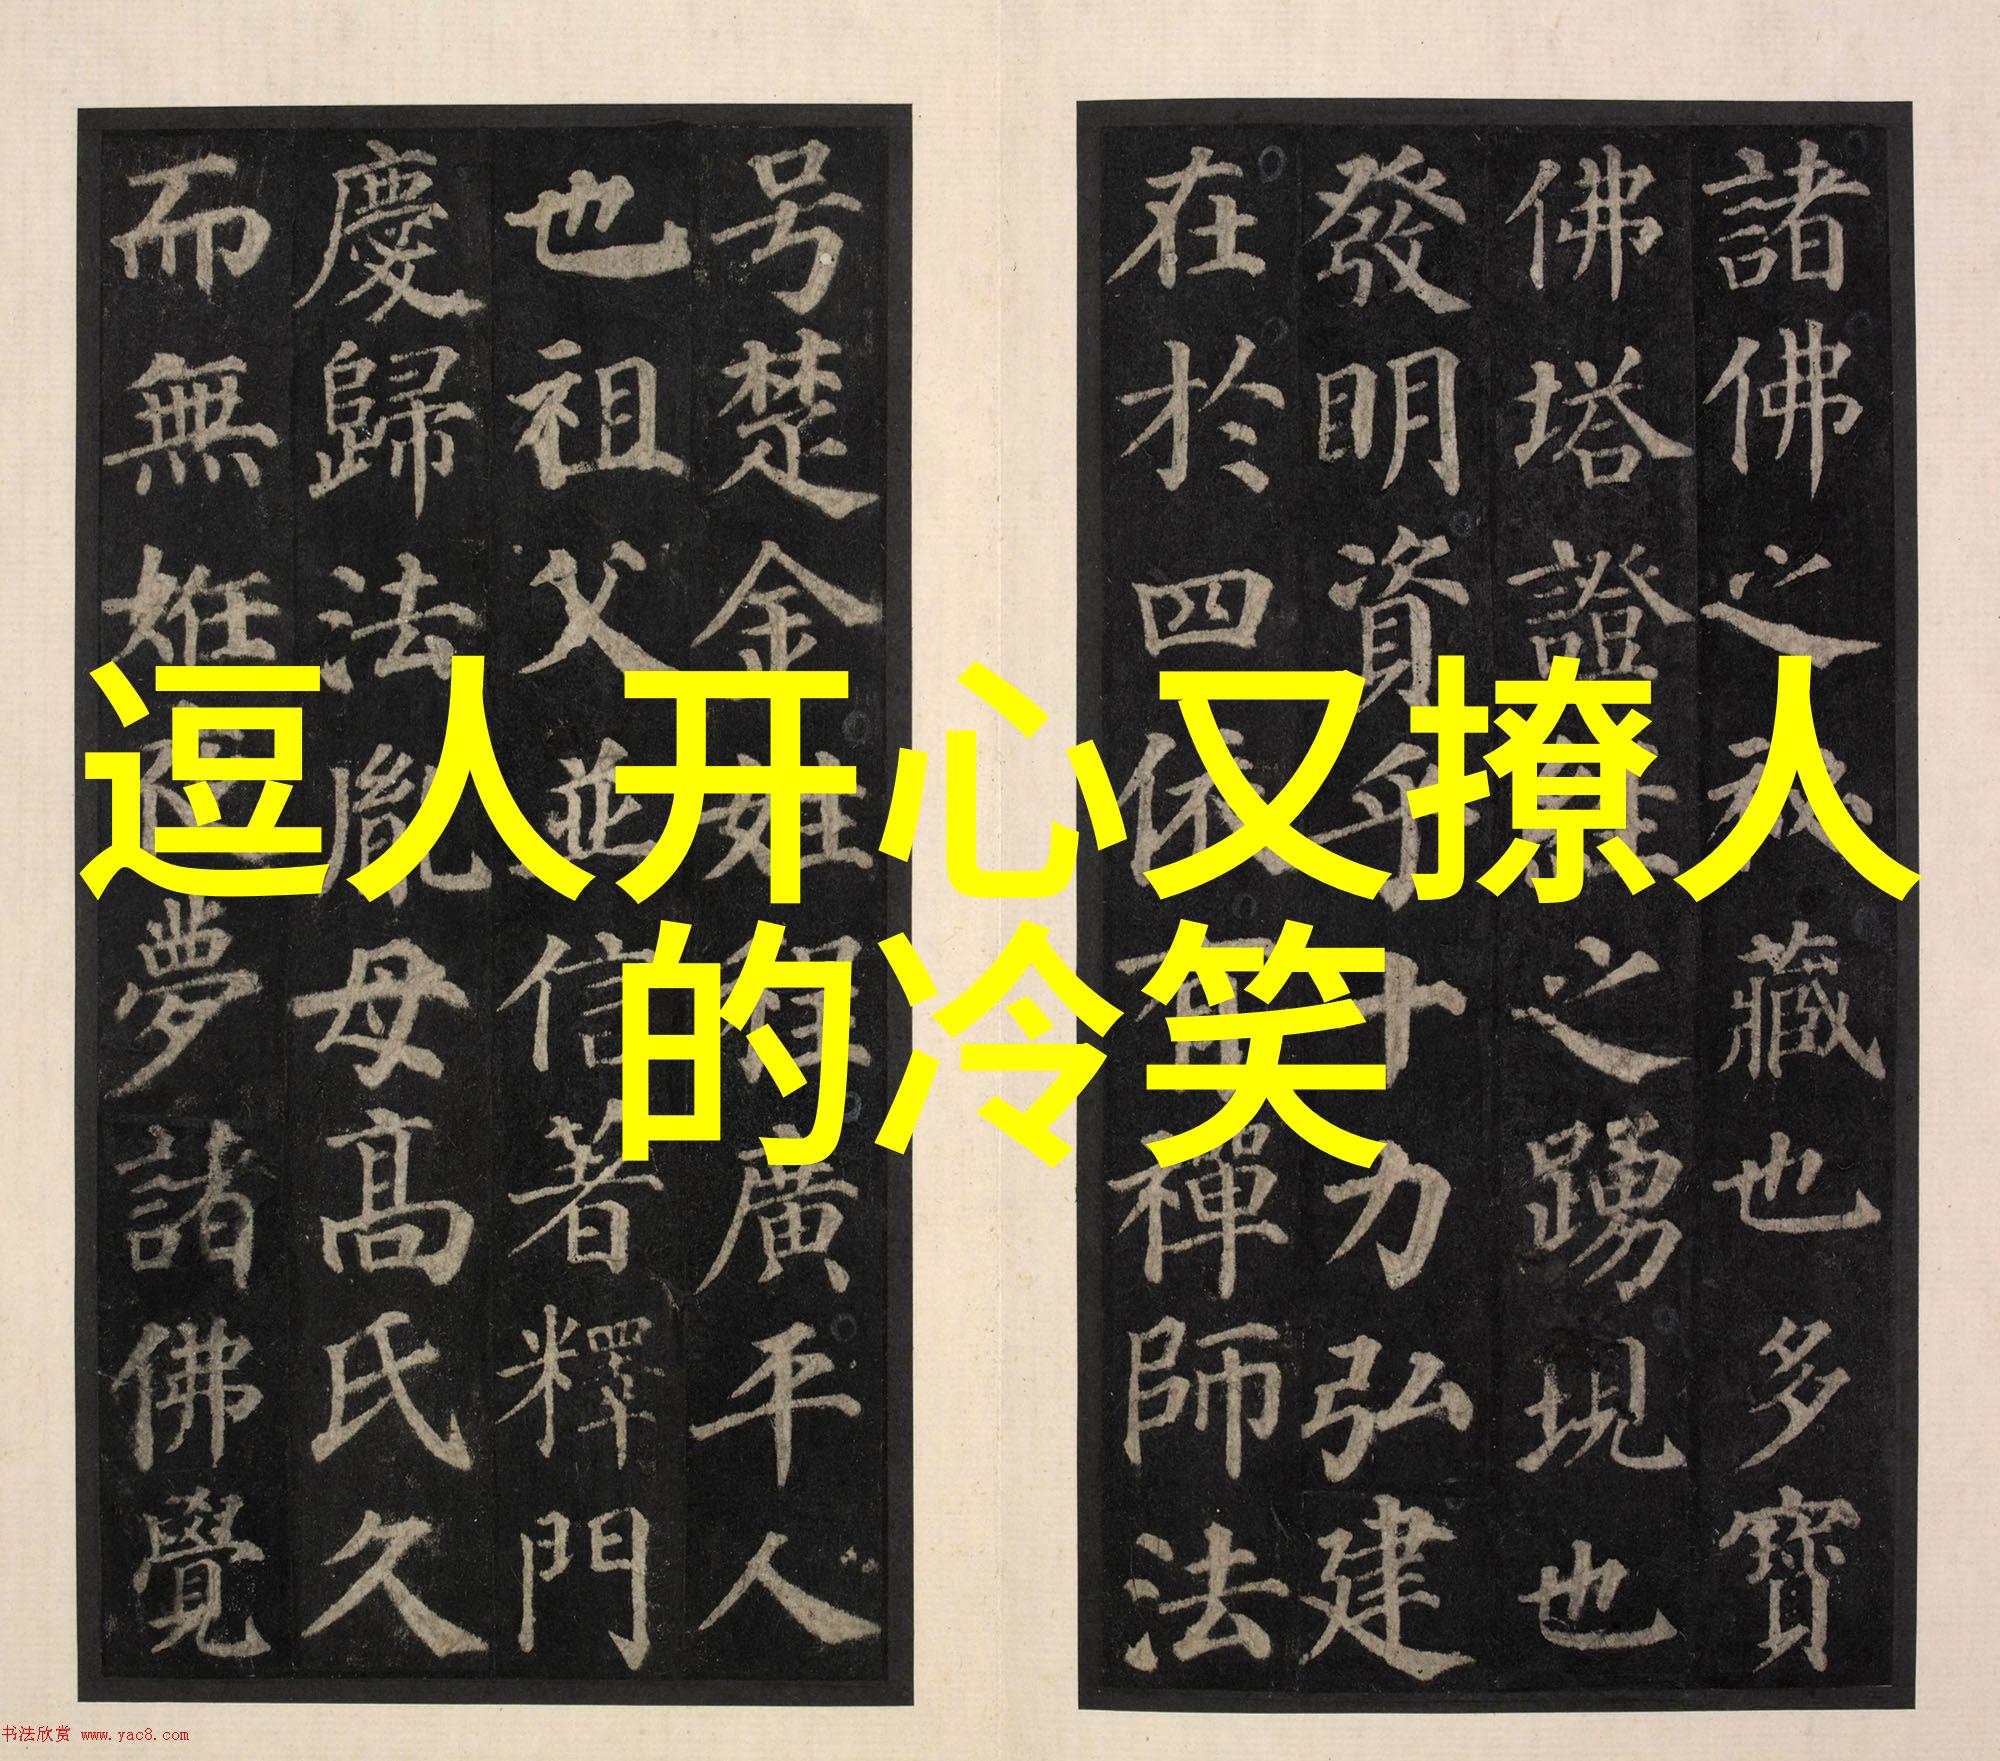 諸佛之秘藏也多寶
佛塔證經之踴現也
發明資乎十力弘建
在於四依有禪師法
号楚金姓程廣平人
也祖父並信著釋門
慶歸法胤母高氏久
而無姙夜夢諸佛覺
逗人开心又撩人
的冷笑
书法欣赏 www.yac8.com